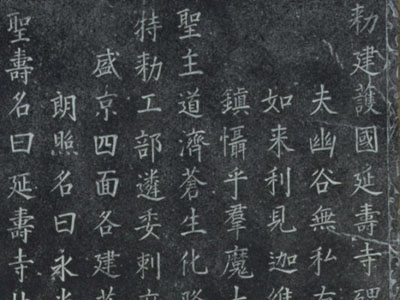 勅建護國延壽寺碑
夫幽谷無私有
如来利見迦維
鎮懾乎羣魔大
聖主道濟蒼生化
特勅工部遴委剌
盛京四面各建
朗照名曰永光
聖壽名曰延壽寺